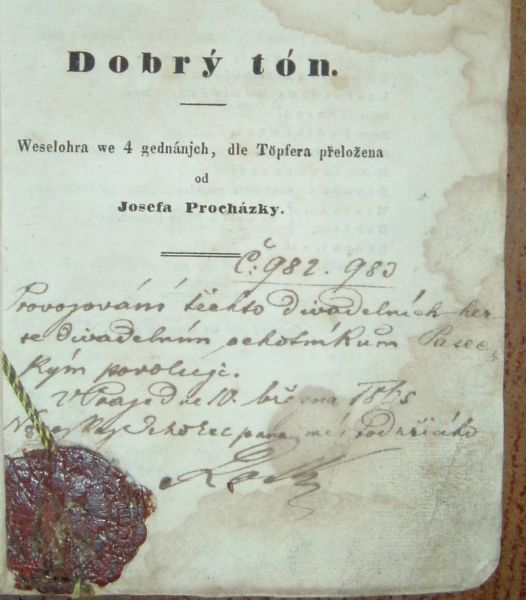 Dobrý tón.
Weselohra we 4 gednánjch, dle Töpfera přeložena
od
Josefa Procházky.
Č. 982. 983
Provozování těchto divadelních her
se divadelním ochotníkům Pasec-
kým povoluje.
V Praze dne 10. března 1865